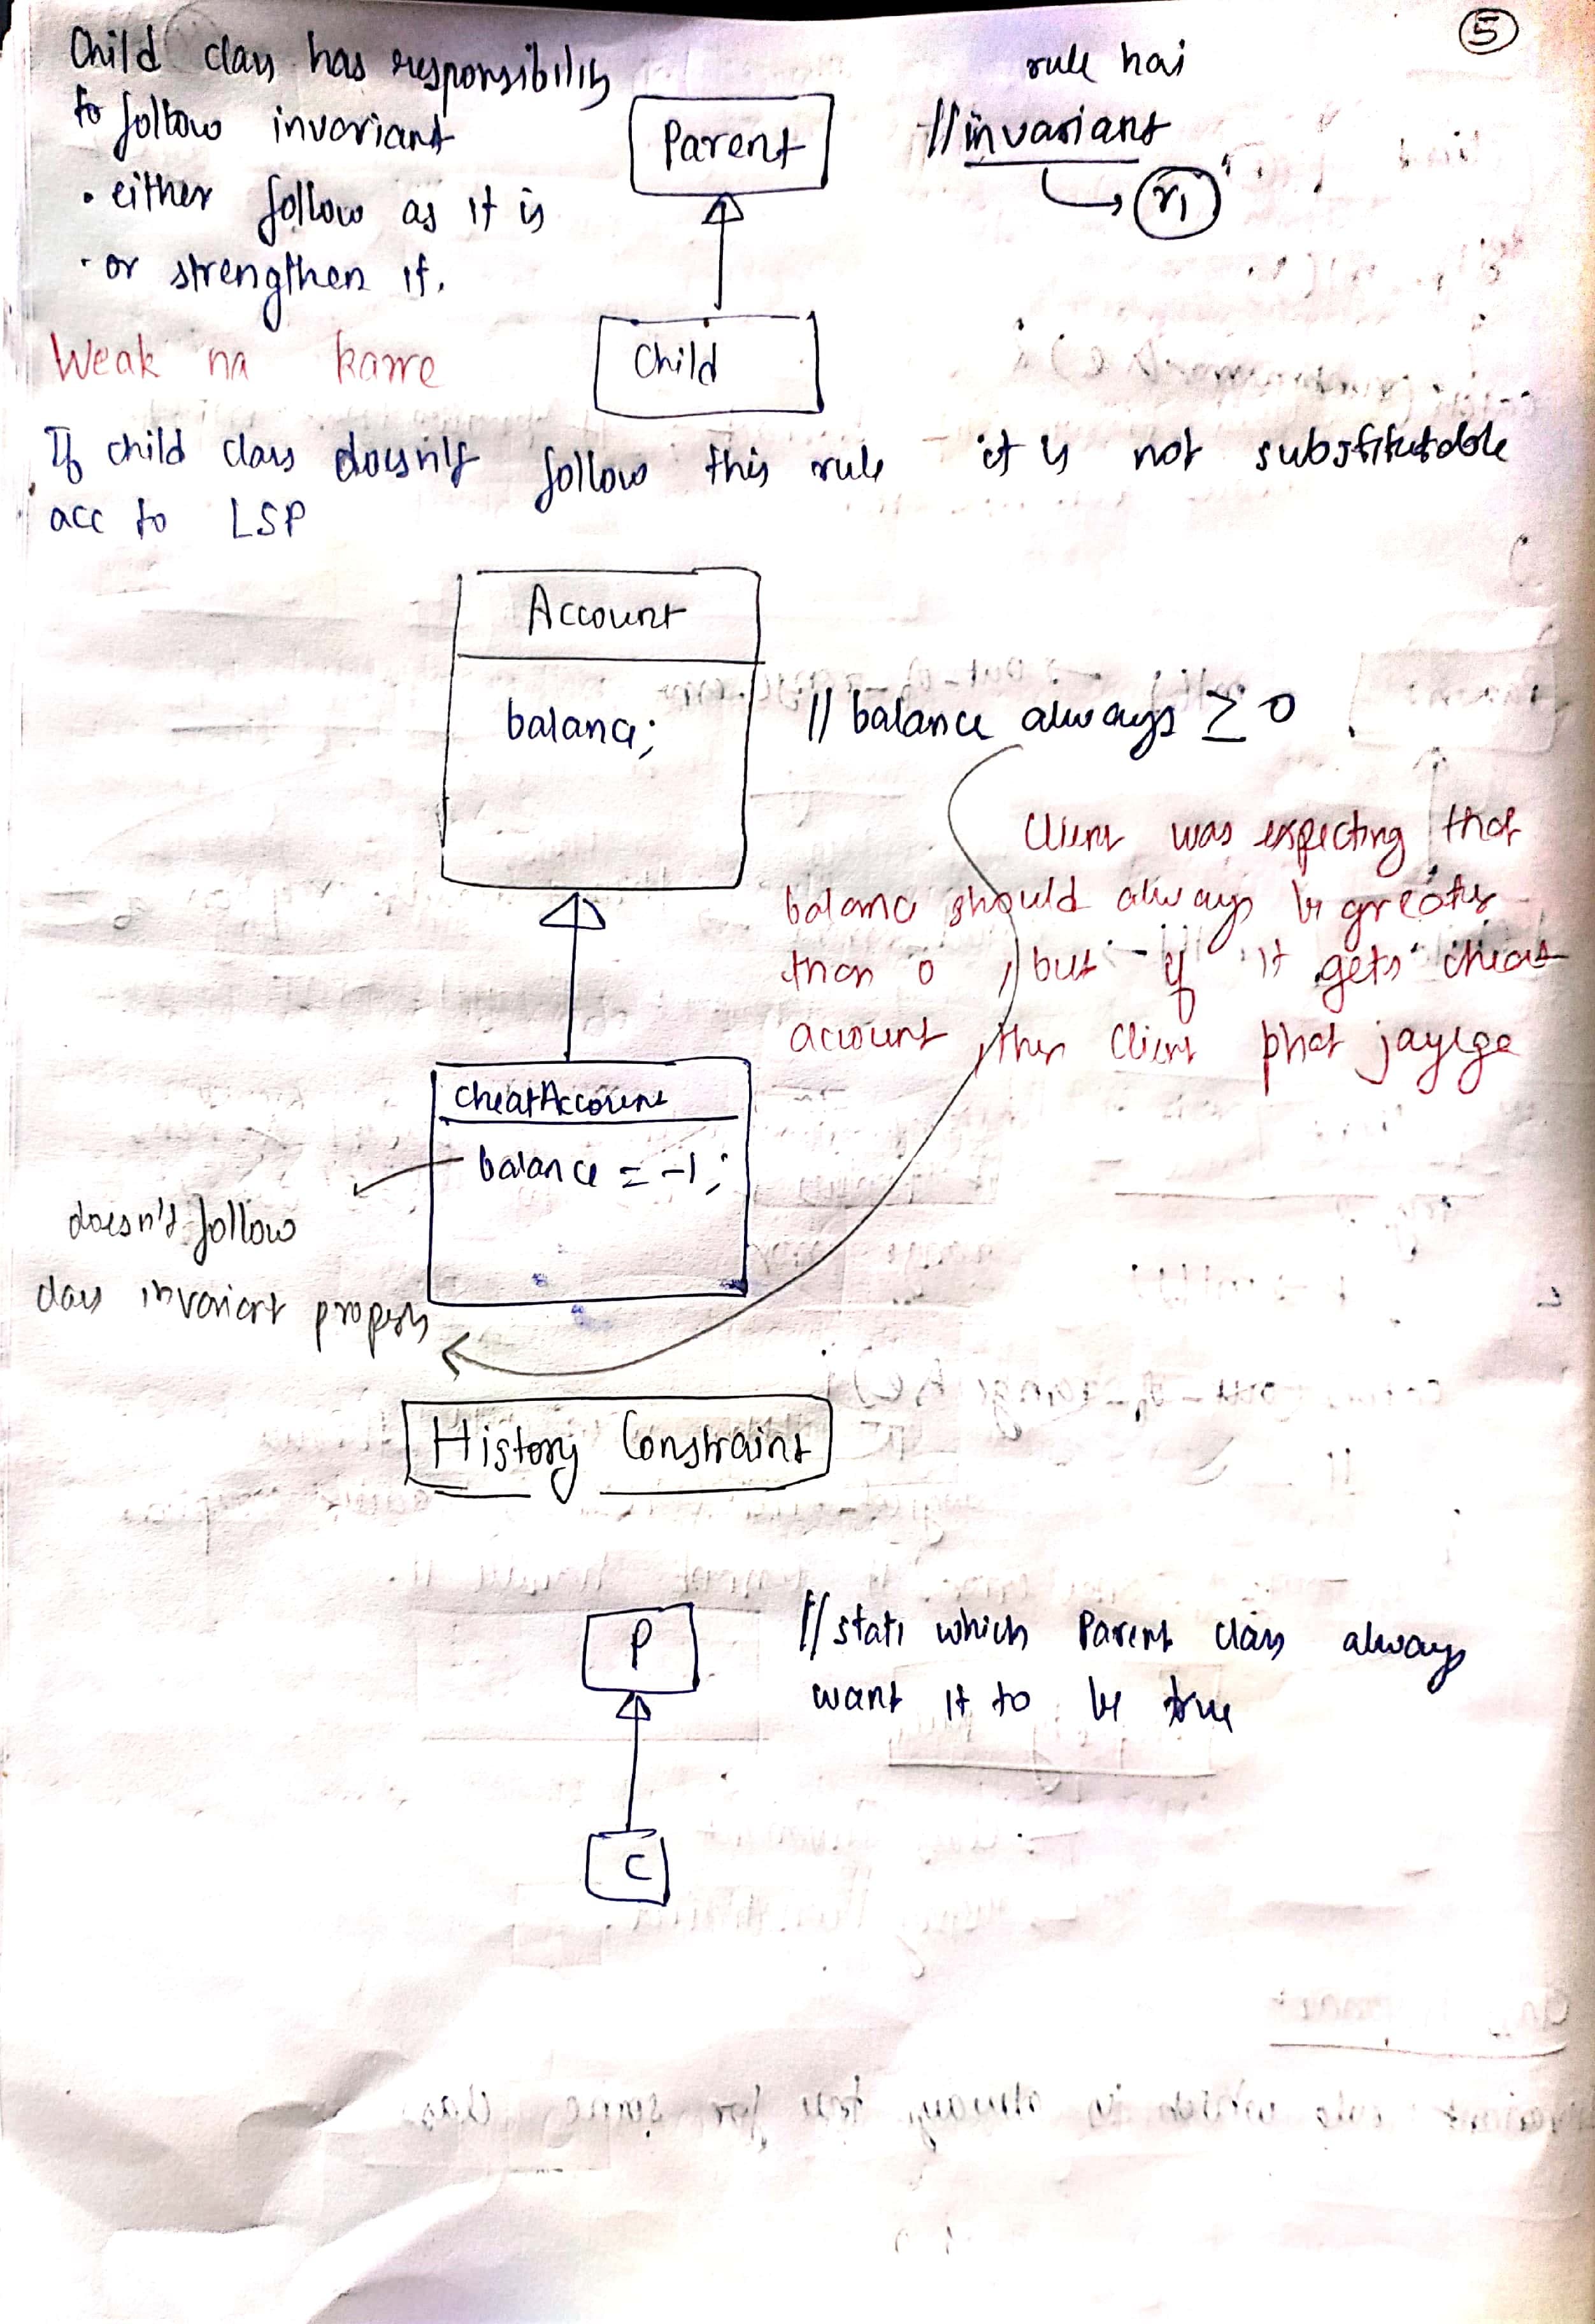 5
Child class has responsibility
to follow invariant
• either follow as it is
• or strengthen it.
Weak na karre
Parent
Child
rule hai
// invariant
r1
If child class doesn't follow this rule it is not substitutable
acc to LSP
Account
balance;
// balance always ≥ 0
Client was expecting that
balance should always be greater
than 0 , but if it gets cheat
account , then client phat jayega
cheatAccount
balance = -1;
doesn't follow
class invariant property
History Constraint
P
C
// state which Parent class always
want it to be true